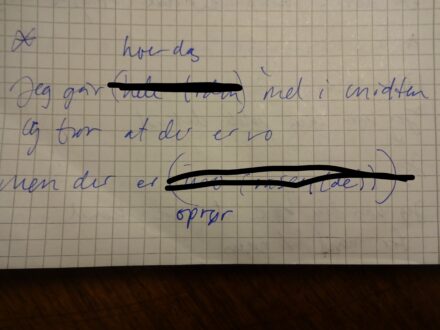 hver dag
Jeg går (hele tiden) ind i midten
og tror at der er ro
men der er
oprør